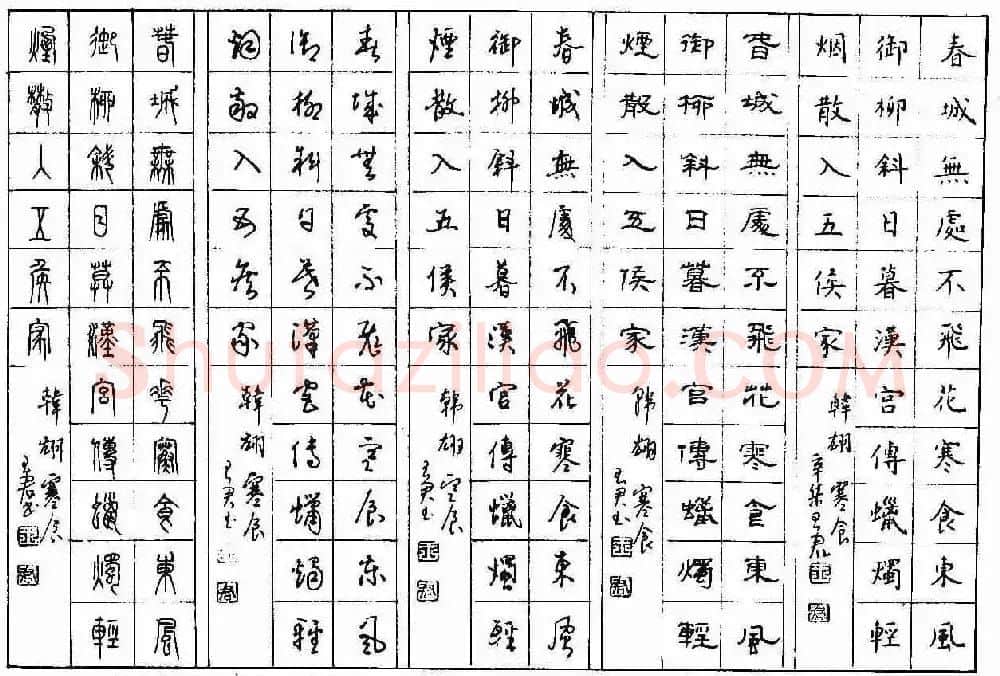 春城無處不飛花寒食東風
御柳斜日暮漢宮傳蠟燭輕
烟散入五侯家
韓翃寒食
春城無處不飛花寒食東風
御柳斜日暮漢宮傳蠟燭輕
煙散入五侯家
韓翃寒食
春城無處不飛花寒食東風
御柳斜日暮漢宮傳蠟燭輕
煙散入五侯家
韓翃寒食
春城無處不飛花寒食東風
御柳斜日暮漢宮傳蠟燭輕
烟散入五侯家
韓翃寒食
春城無處不飛花寒食東風
御柳斜日暮漢宮傳蠟燭輕
煙散入五侯家
韓翃寒食
Shufaziliao.COM